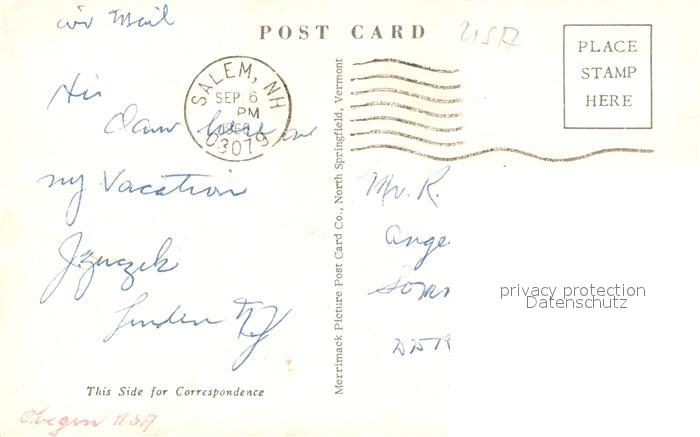 Air Mail
POST CARD
USA
PLACE
STAMP
HERE
SALEM, NH
SEP 6
PM
03079
Hi
I am here on
my Vacation
Linden NJ
This Side for Correspondence
Merrimack Picture Post Card Co., North Springfield, Vermont
Mr. R.
Ange
Som
DDR
privacy protection
Datenschutz
USA